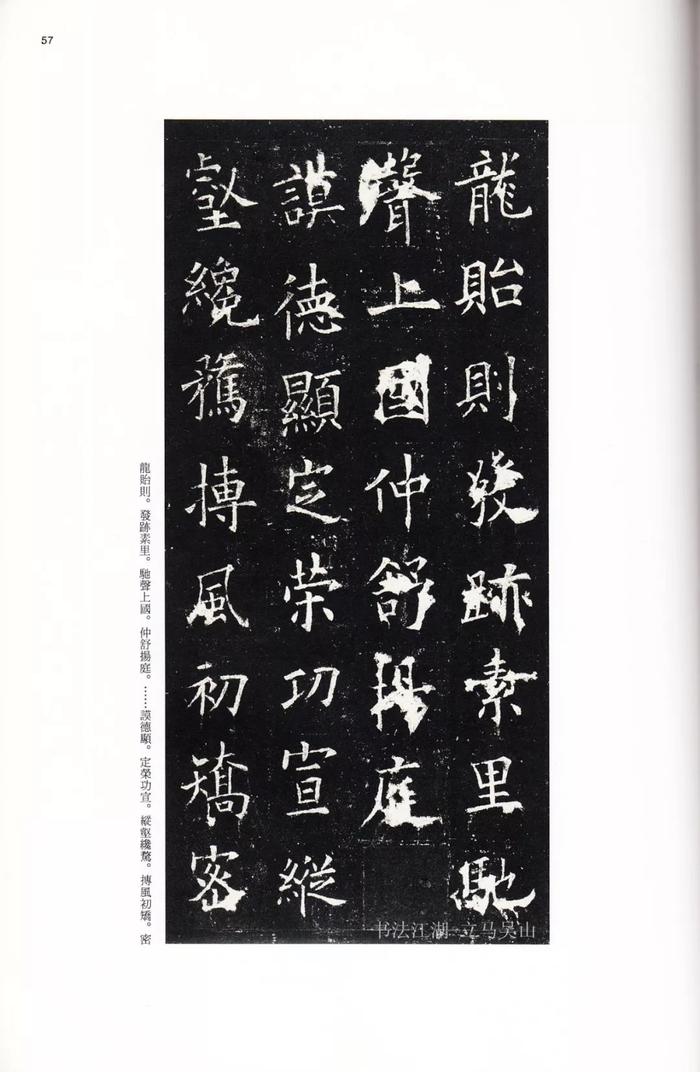 57
龍貽則發跡素里馳
聲上國仲舒揚庭
謨德顯定荣功宣縱
壑纔鶩摶風初矯密
龍貽則。發跡素里。馳聲上國。仲舒揚庭。……謨德顯。定榮功宣。縱壑纔鶩。摶風初矯。密
书法江湖 立马吴山